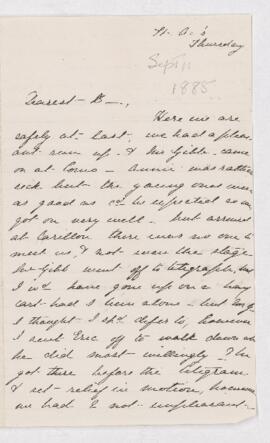 St. A's
Thursday
Sept 11
1885
Dearest B—,
Here we are
safely at last. we had a pleas-
ant run up. & Mr Gibb came
on at Como - Annie was rather
sick but the young ones were
as good as cd be expected so we
got on very well - but arrived
at Carillon there was no one to
meet us, & not even the stage
Mr Gibb went off to telegraph, but
I wd have gone up on a hay
cart had I been alone - but
I thought I shd defer to, however
I sent Eric off to walk down wh
he did most willingly & he
got there before the telegram
& set relief in motion, however
we had a not unpleasant